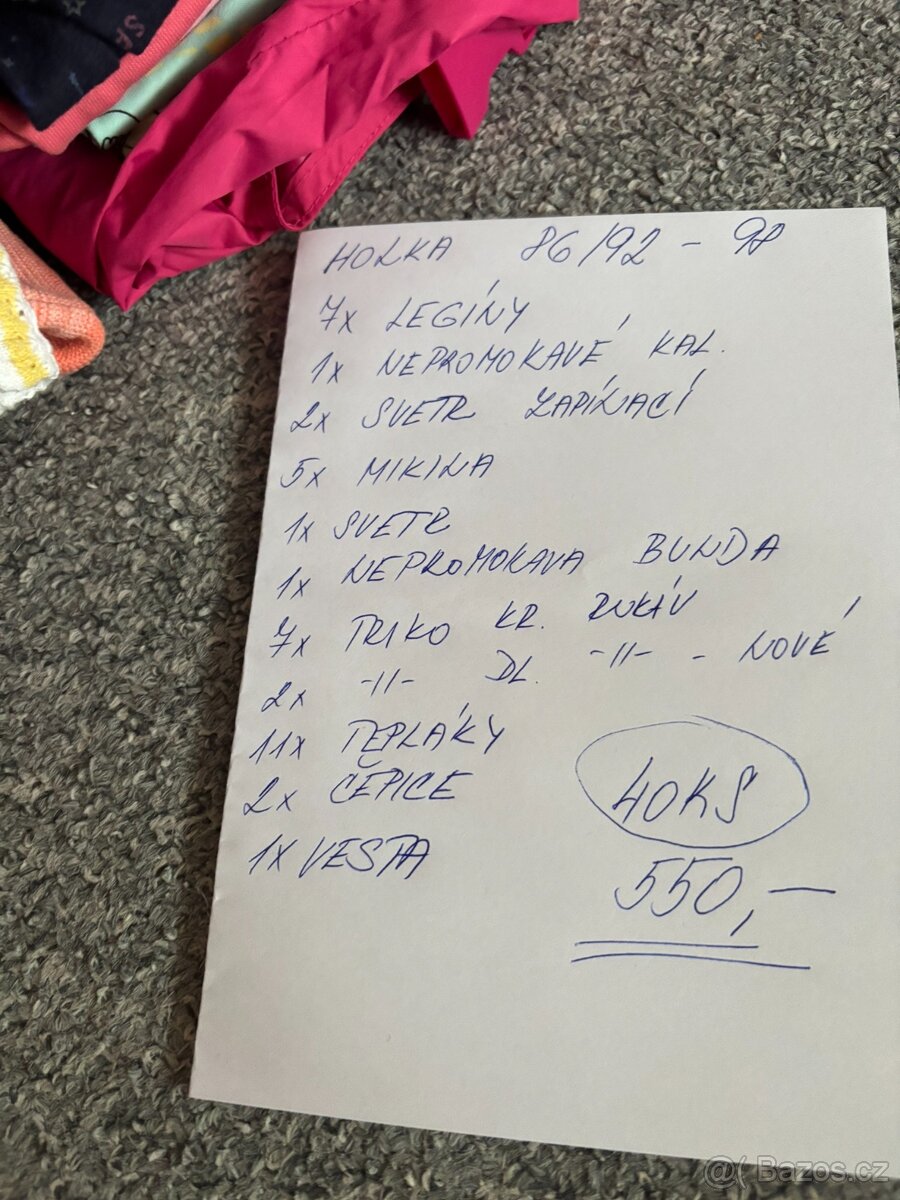 HOLKA 86/92 - 98
7x LEGÍNY
1x NEPROMOKAVÉ KAL.
2x SVETR ZAPÍNACÍ
5x MIKINA
1x SVETR
1x NEPROMOKAVA BUNDA
7x TRIKO KR. RUKÁV
2x -11- DL. -11- - NOVÉ
11x TEPLÁKY
2x ČEPICE
1x VESTA
40KS
550,-
@( Bazos.cz